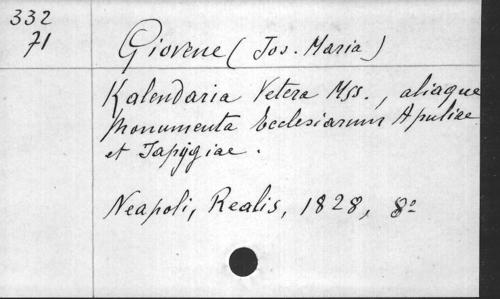 332
71
Giovene (Jos. Maria)
Kalendaria Vetera Mss., aliaque
Monumenta Ecclesiarum Apuliae
et Japygiae.
Neapoli, Realis, 1828, 8º